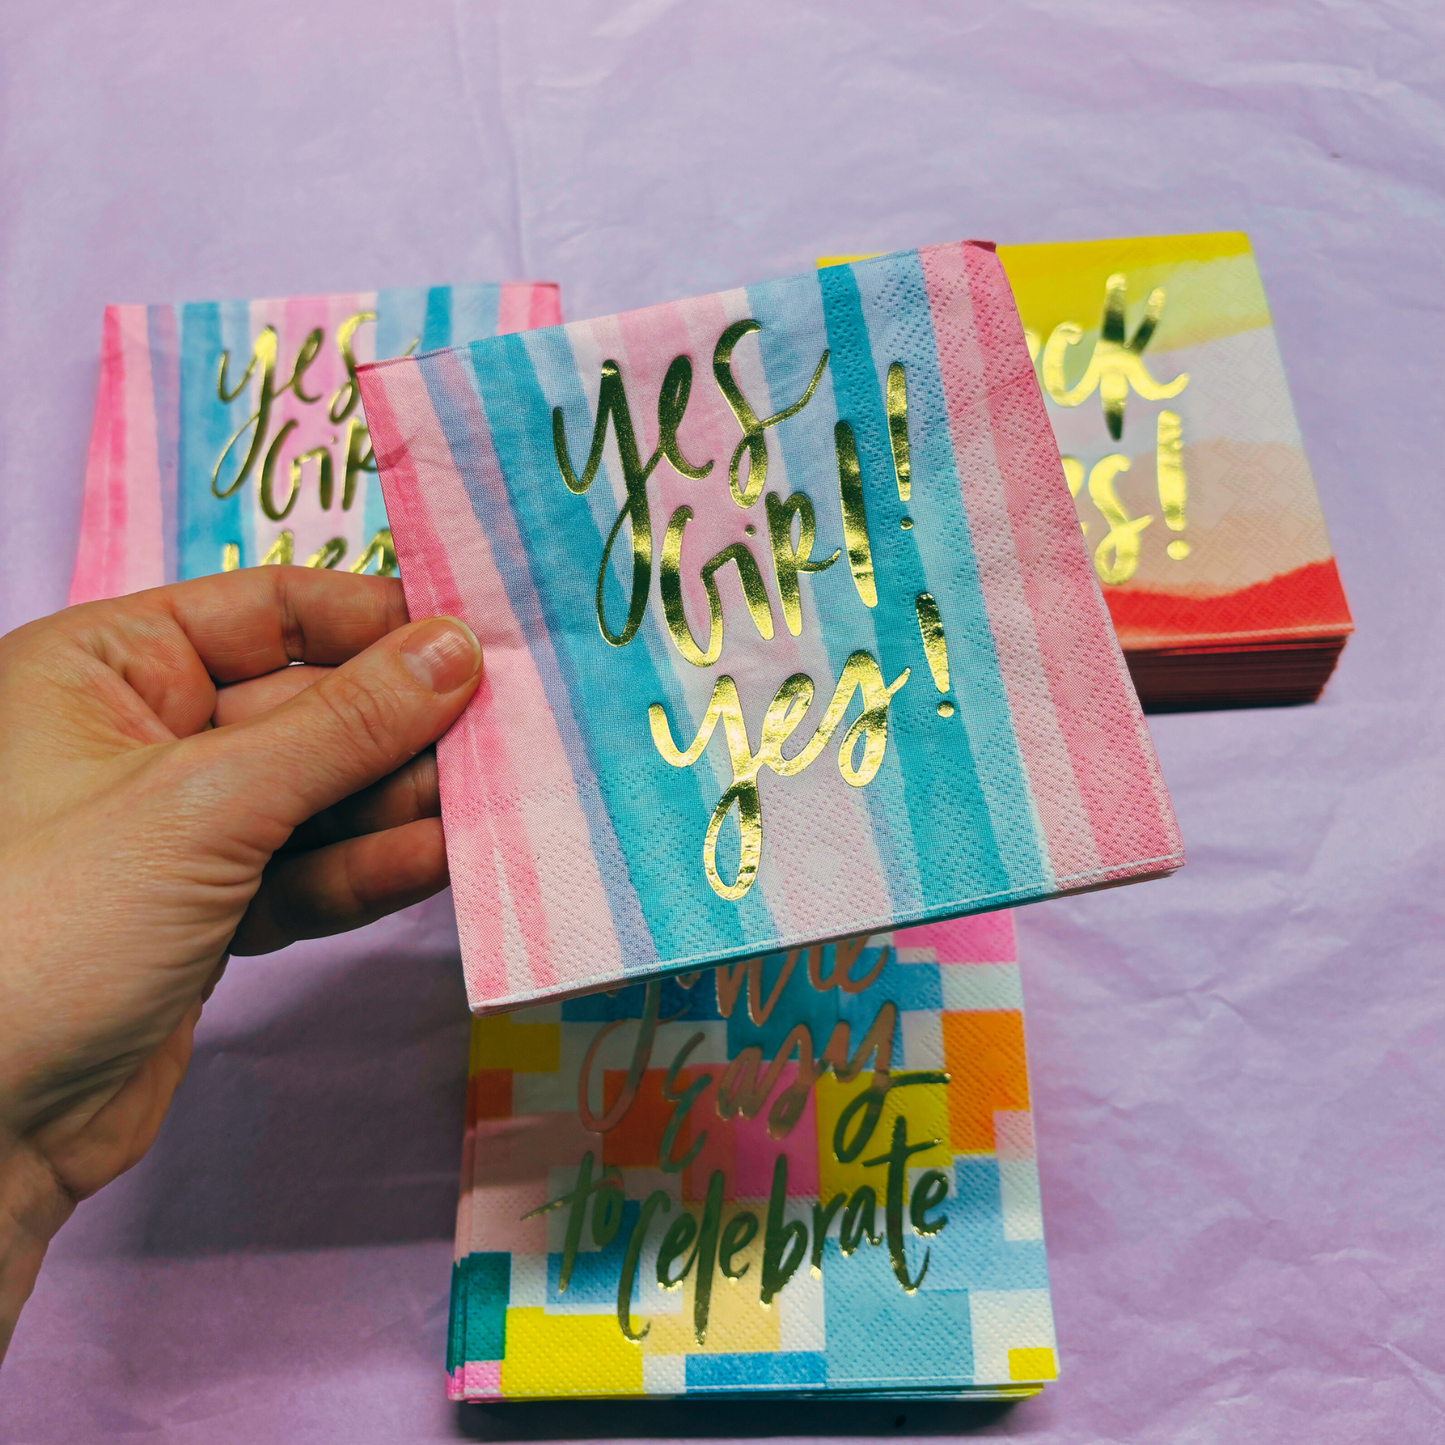 yes
Girl!
yes!
yes
Girl
yes
yes!
Easy
to celebrate